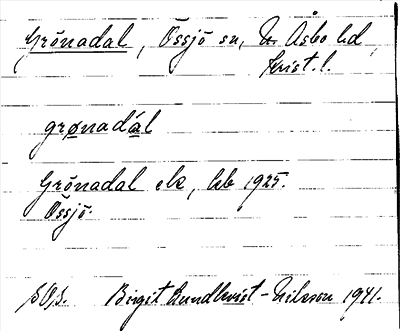 Grönadal, Össjö sn, N. Åsbo hd,
Krist. l.
grønadál
Grönadal ek, kb 1925.
Össjö.
SOS. Birgit Lundkvist-Nilsson 1941.